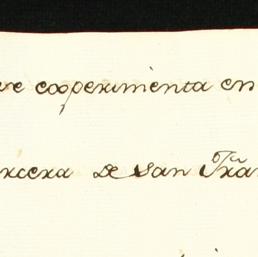 ve experimenta en
rcera de san Fran